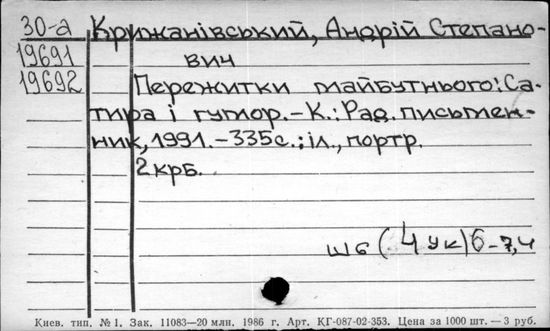 30-а Крижанівський, Андрій Степано-
19691 вич
19692 Пережитки майбутнього: Са-
тира і гумор. – К.: Рад. письмен-
ник, 1991. – 335 с.; іл., портр.
2 крб.
Ш6 (4 Ук) 6-7,4
Киев. тип. № 1. Зак. 11083—20 млн. 1986 г. Арт. КГ-087-02-353. Цена за 1000 шт. — 3 руб.